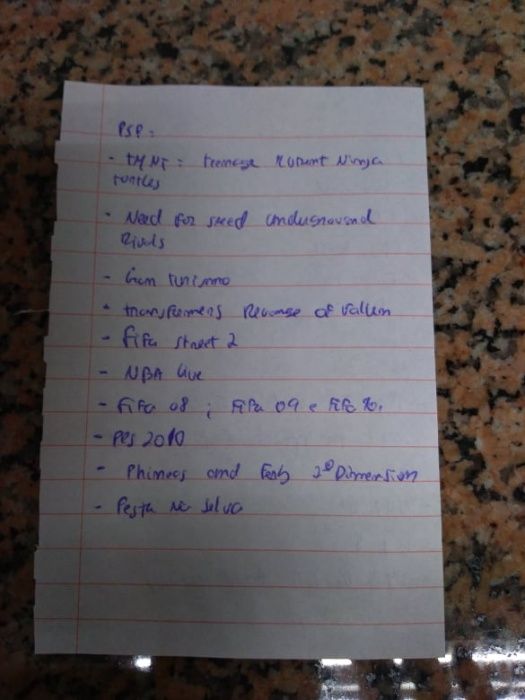 PSP:
- TMNT: teenage Mutant Ninja
turtles
- Need for speed underground
Rivals
- Gran turismo
- transformers Revenge of Fallen
- Fifa street 2
- NBA Live
- Fifa 08 ; Fifa 09 e Fifa 10.
- Pes 2010
- Phineas and Ferb 2ª Dimension
- Festa na selva